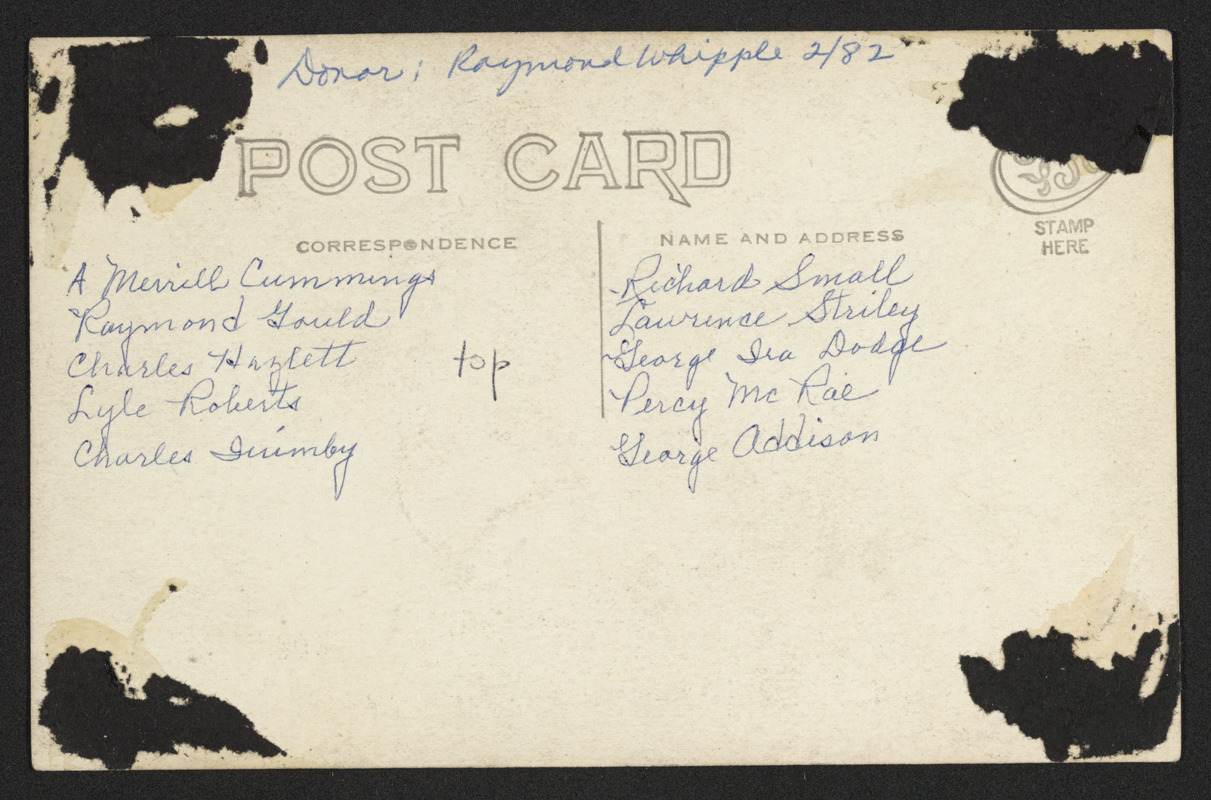 Donor: Raymond Whipple 2/82
POST CARD
CORRESPONDENCE
A Merrill Cummings
Raymond Gould
Charles Hazlett
Lyle Roberts
Charles
top
NAME AND ADDRESS
Richard Small
Lawrence Striley
George Ira Dodge
Percy Mc Rae
George Addison
STAMP
HERE